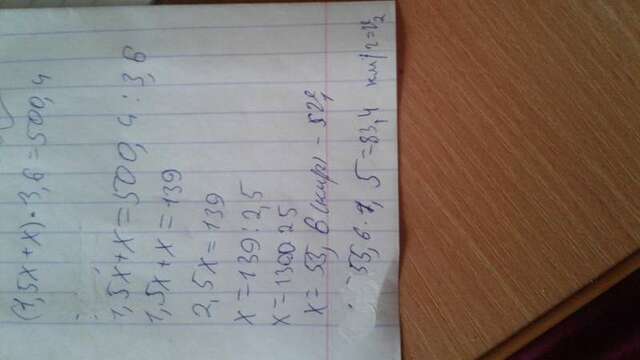 (1,5x+x)·3,6=500,4
1,5x+x=500,4:3,6
1,5x+x=139
2,5x=139
x=139:2,5
x=55,6(км/ч)
55,6·1,5=83,4 км/ч=V2